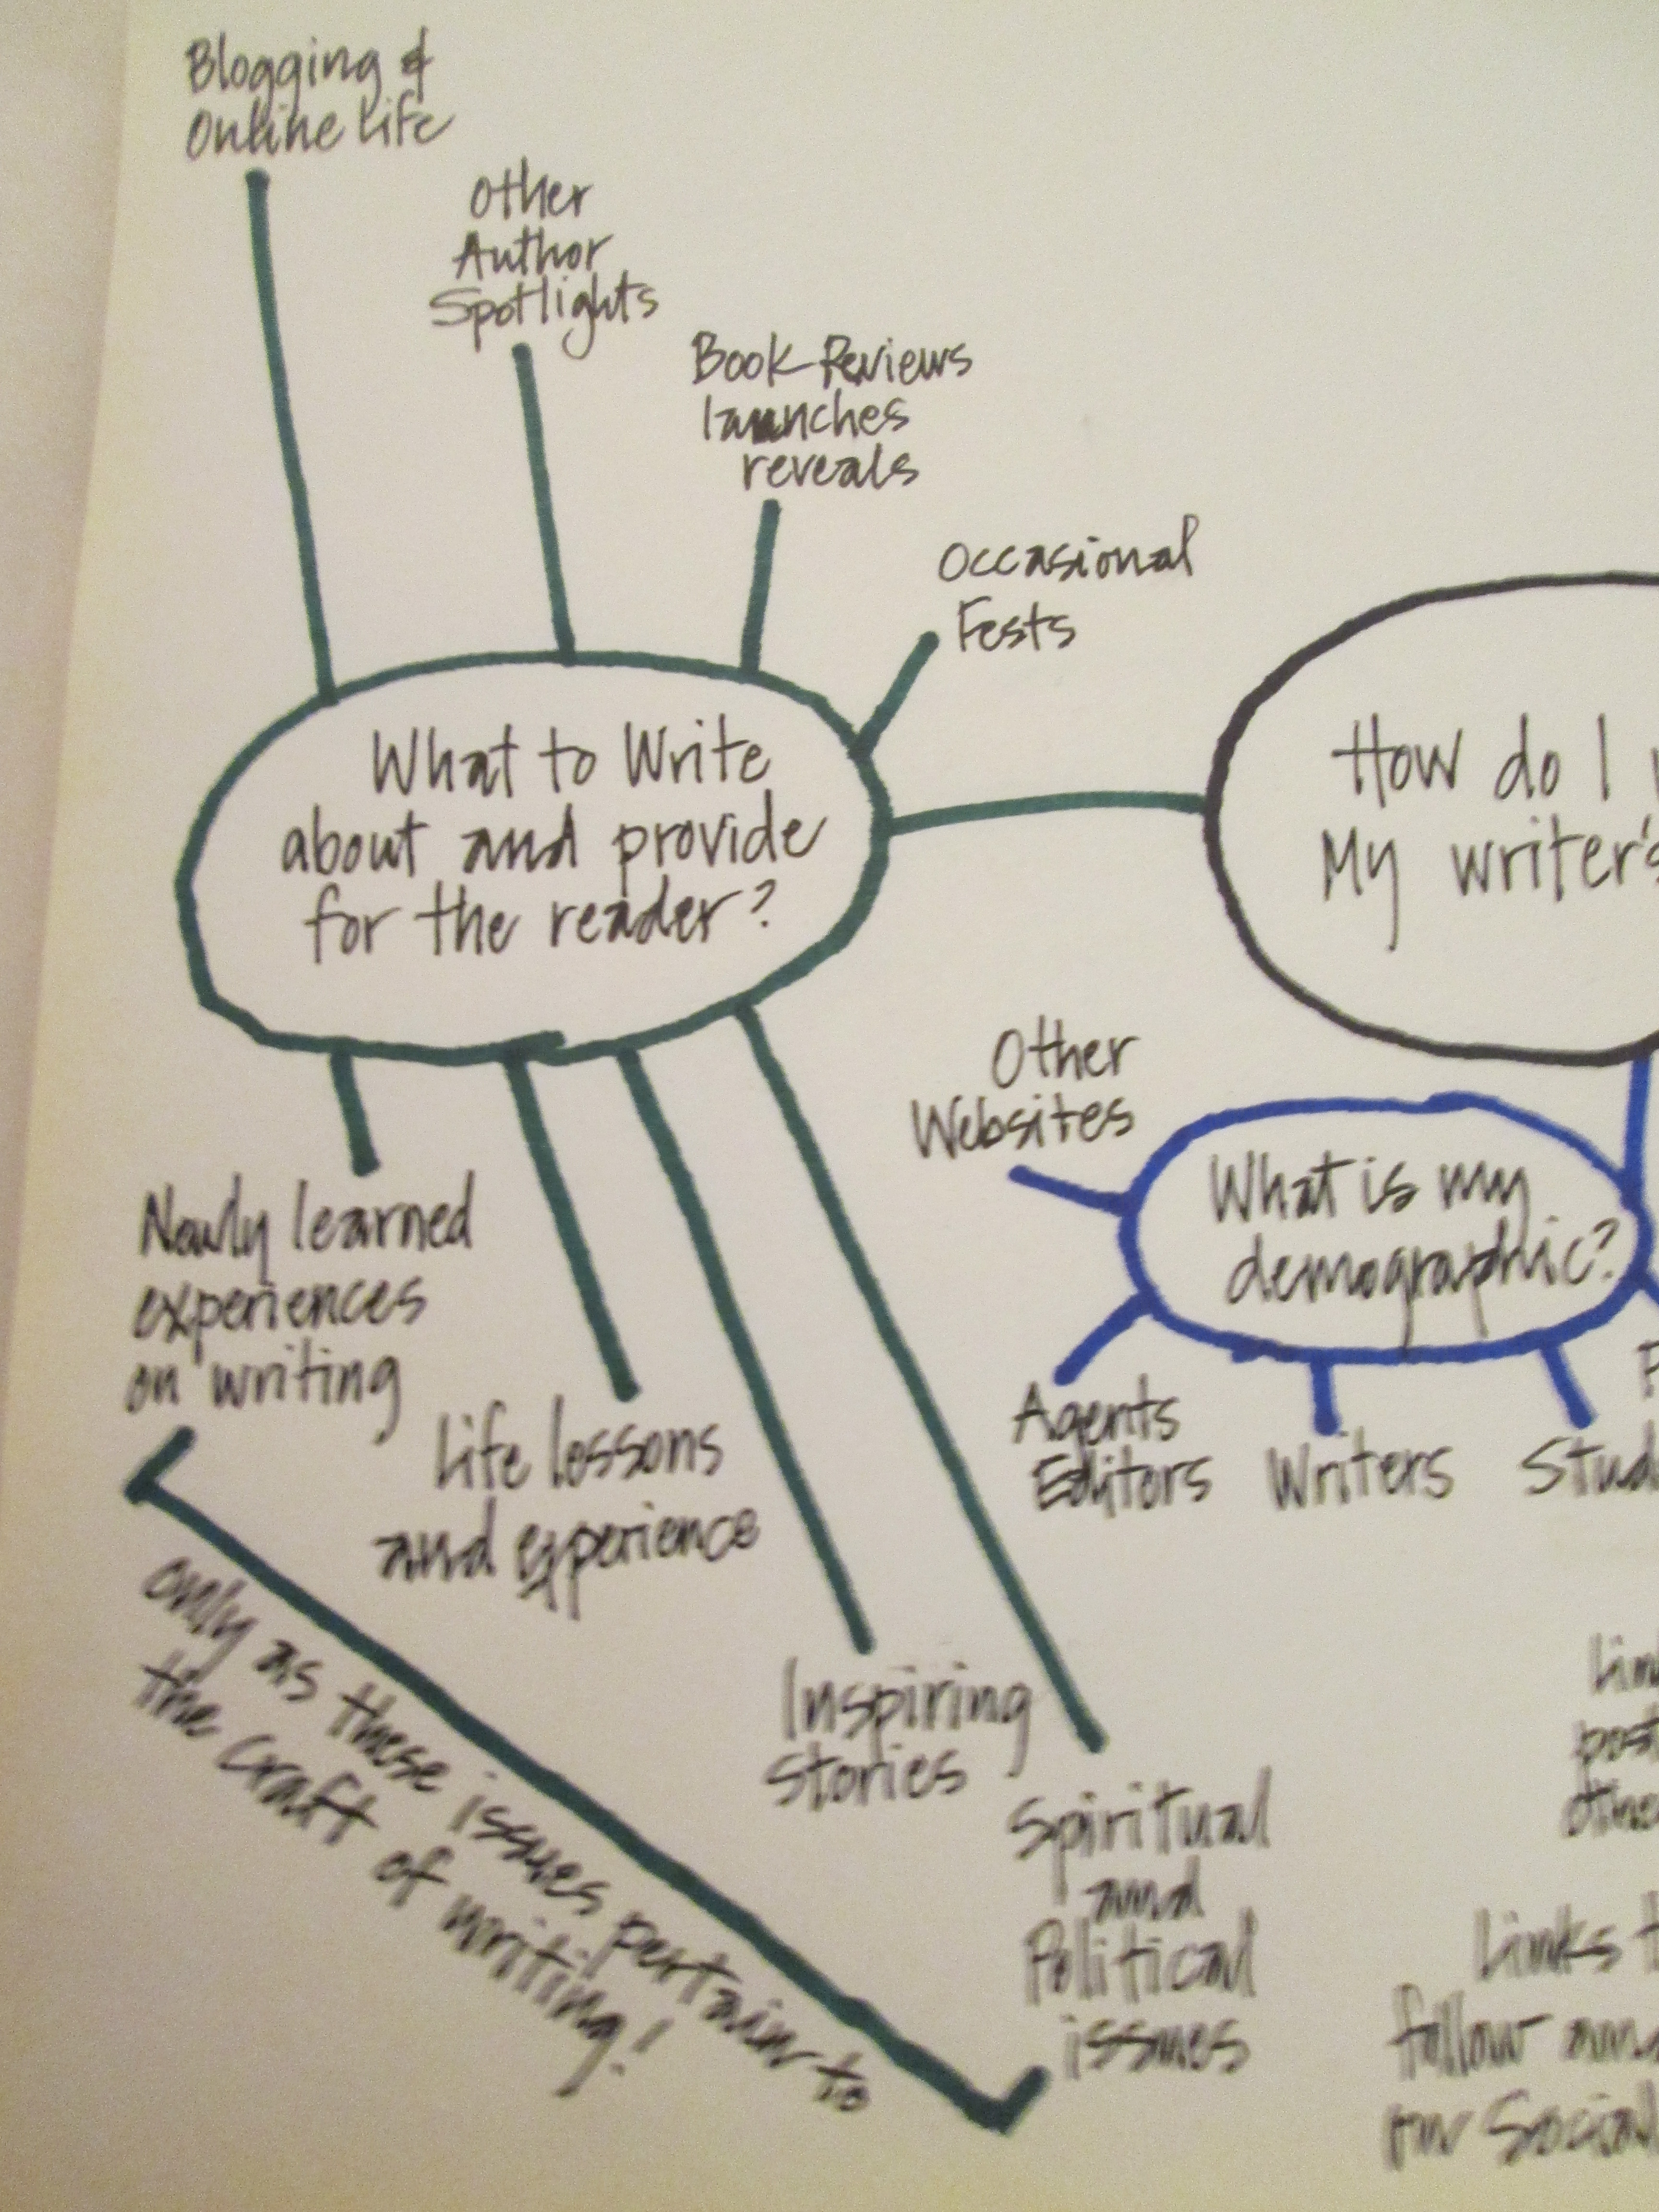 Blogging &
Online Life
Other
Author
Spotlights
Book Reviews
launches
reveals
Occasional
Fests
What to Write
about and provide
for the reader?
How do I
My writer's
Other
Websites
What is my
demographic?
Agents
Editors
Writers
Newly learned
experiences
on writing
Life lessons
and experience
Inspiring
Stories
Spiritual
and
Political
issues
only as these issues pertain to
the craft of writing!
Links
follow and
our Social